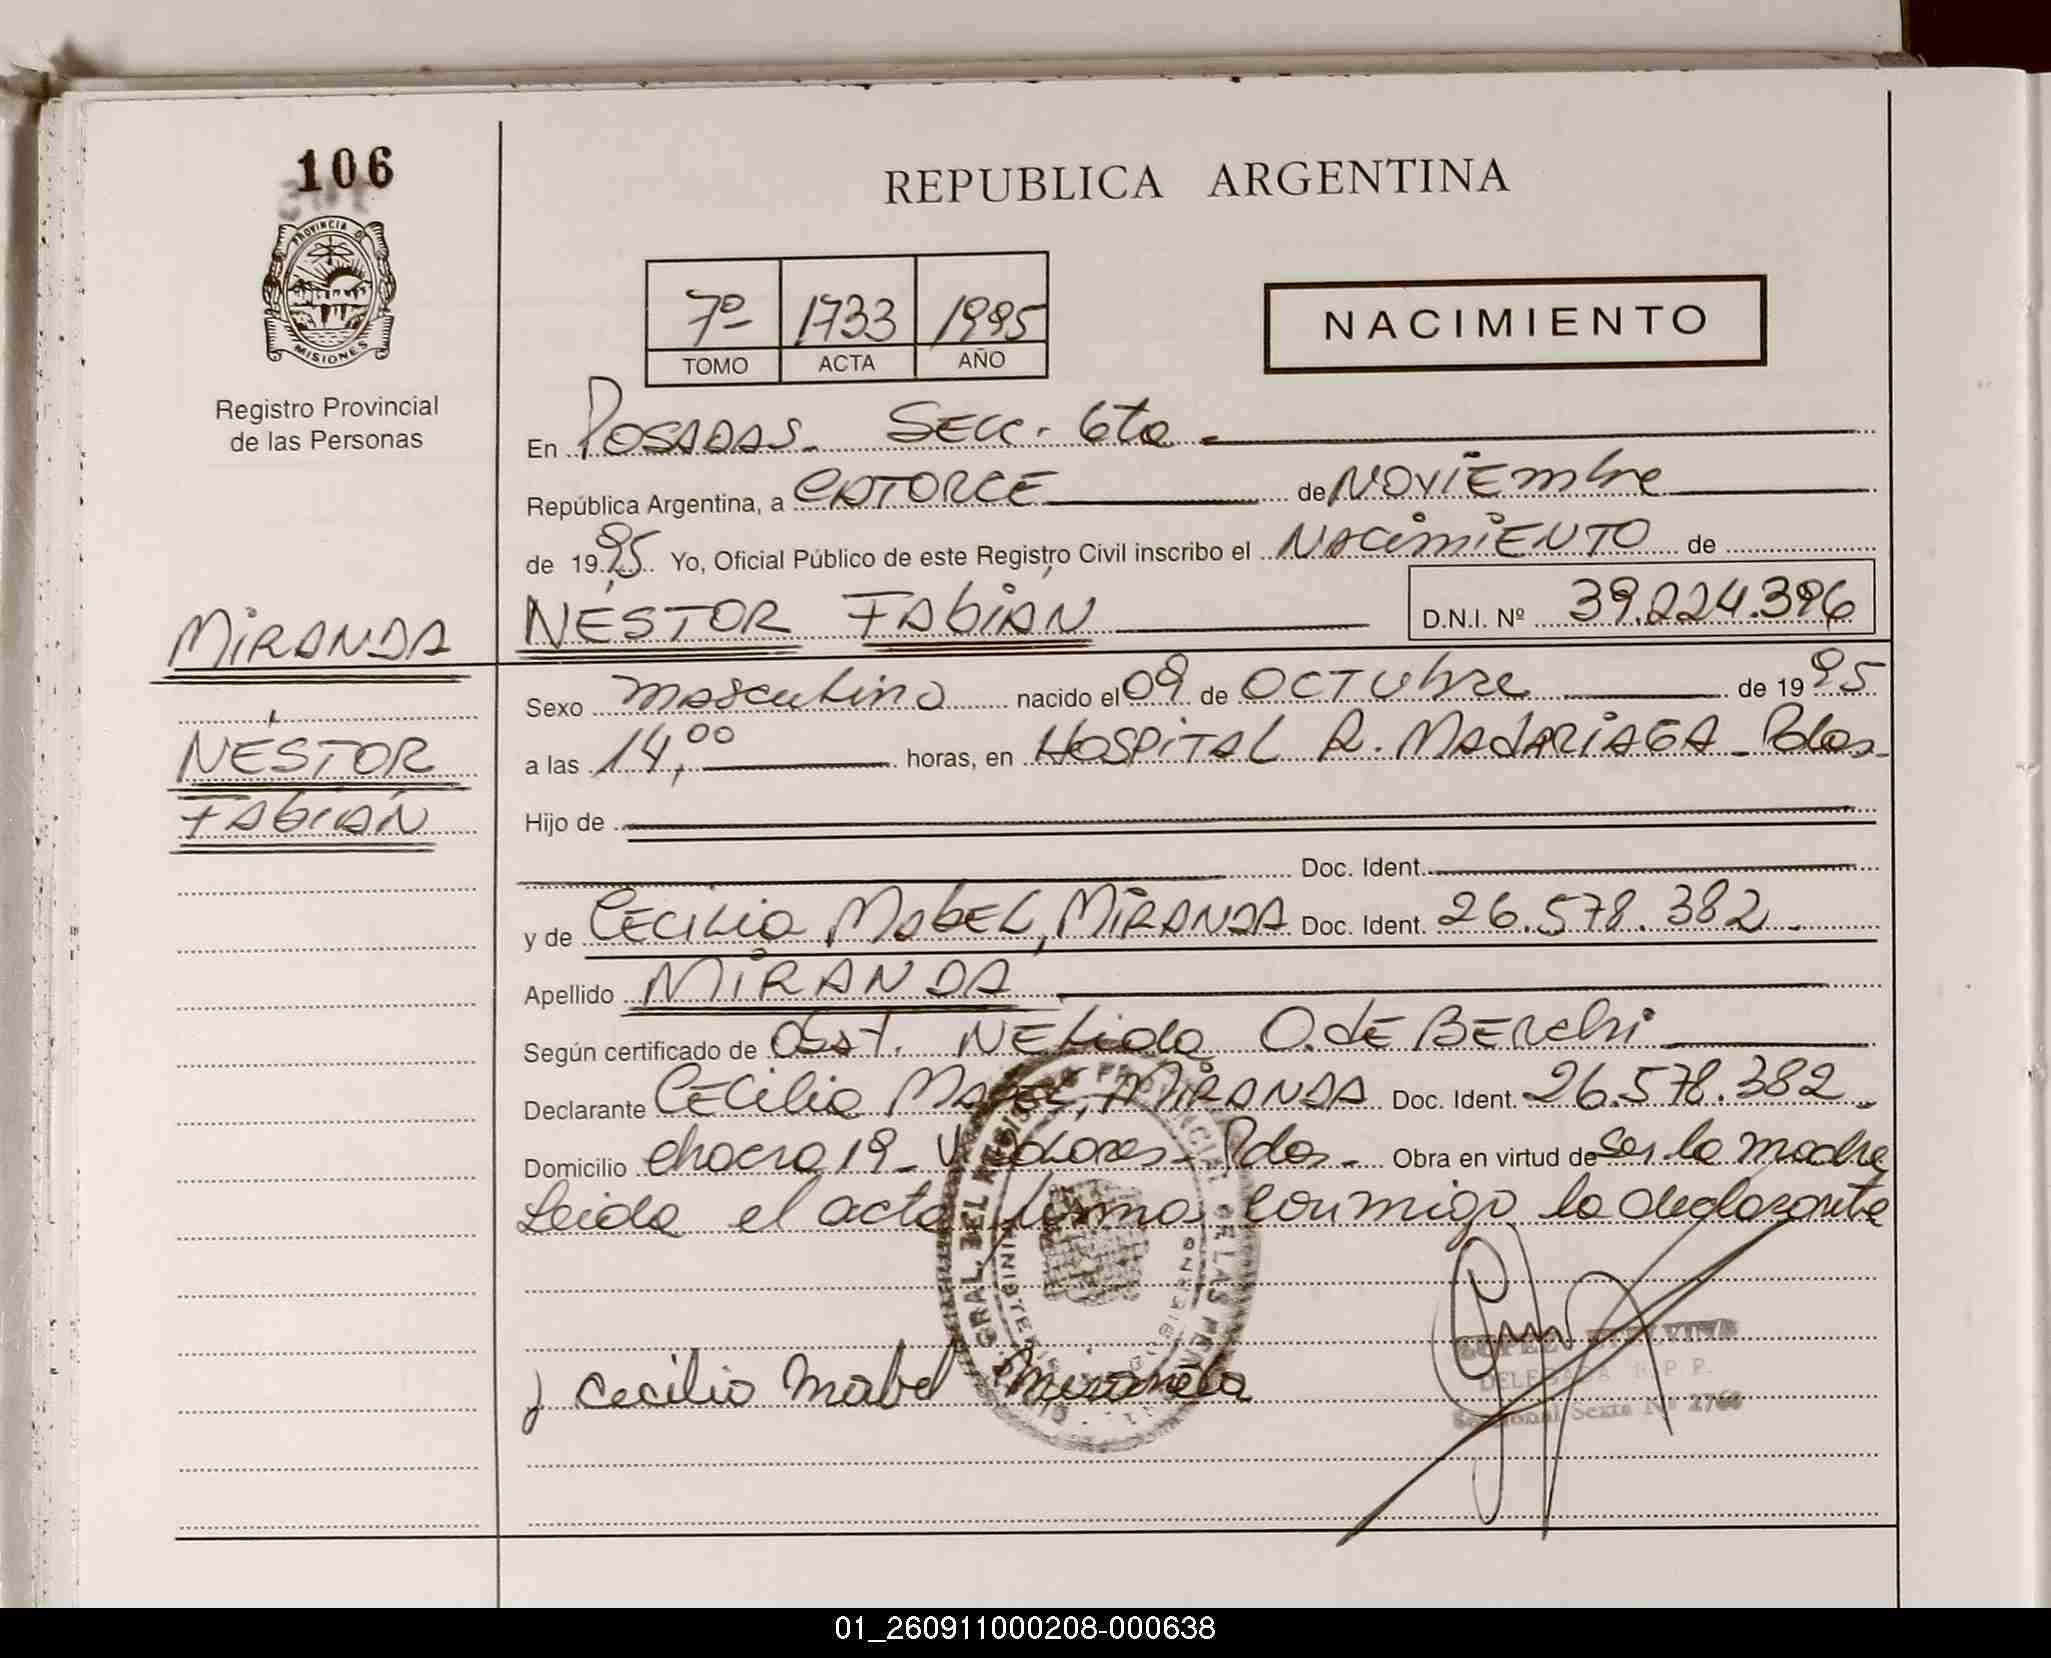 106
PROVINCIA DE
MISIONES
Registro Provincial
de las Personas
REPUBLICA ARGENTINA
7º 1733 1995
TOMO ACTA AÑO
NACIMIENTO
En POSADAS. SECC. 6ta
República Argentina, a CATORCE de NOVIEmbre
de 1995 Yo, Oficial Público de este Registro Civil inscribo el NACimiENTO de
NÉSTOR FAbiÁN D.N.I. Nº 39.224.396
MiRANDA
NÉSTOR
FAbiÁN
Sexo masculino nacido el 09 de OCTUbre de 1995
a las 14,00 horas, en HOSPiTAL R. MADARiAGA - Pdas.
Hijo de
Doc. Ident.
y de CECiLia MabEL, MiRANDA Doc. Ident. 26.578.382
Apellido MiRANDA
Según certificado de Obst. NELida O. dE BERchi
Declarante CECilia MabEL, MiRANDA Doc. Ident. 26.578.382
Domicilio chacra 19 - Vª Dolores - Pdas - Obra en virtud de ser la madre
Leida el acta firma conmigo la declarante
Cecilia Mabel Miranda
DELEGADA R. P. P.
Seccional Sexta Nº
01_260911000208-000638